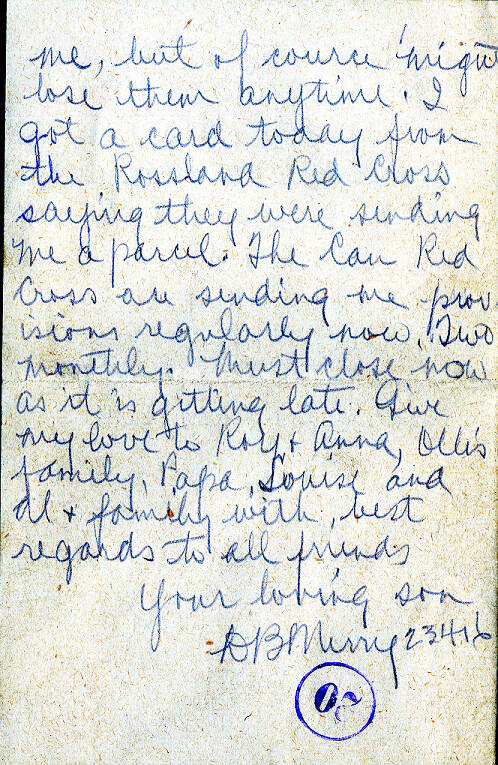 me, but of course might
lose them anytime. I
got a card today from
the Rossland Red Cross
saying they were sending
me a parcel. The Can Red
Cross are sending me prov
isions regularly now, Two
monthly. Must close now
as it is getting late. Give
my love to Roy + Anna, Ollis
family, Papa, Louise and
Al + family with best
regards to all friends
Your loving son
DBMerry 23416